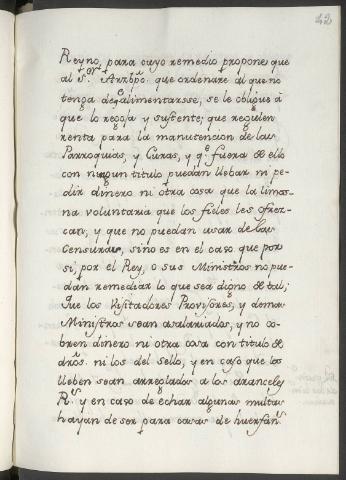 42
Reyno, para cuyo remedio propone que
al S.r Arzbpo. que ordenare al que no
tenga de q alimentarsse, se le oblique à
que lo recoja y sustente; que regulen
renta para la manutencion de las
Parroquias, y Curas, y q.e fuera de ello
con ningun titulo puedan llebar ni pe-
dir dinero ni otra cosa que la limos-
na voluntaria que los fieles les ofrez-
can, y que no puedan usar de las
Censuras, sino es en el caso que por
si, por el Rey, o sus Ministros no pue-
dan remediar lo que sea digno de tal;
Que los Visitadores Provisores, y demas
Ministros sean asalariados, y no co-
bren dinero ni otra cosa con titulo de
dros. ni los del sello, y en caso que los
lleben sean arreglados a los aranceles
R.s y en caso de echar algunas multas
hayan de ser para casas de huerfan.s